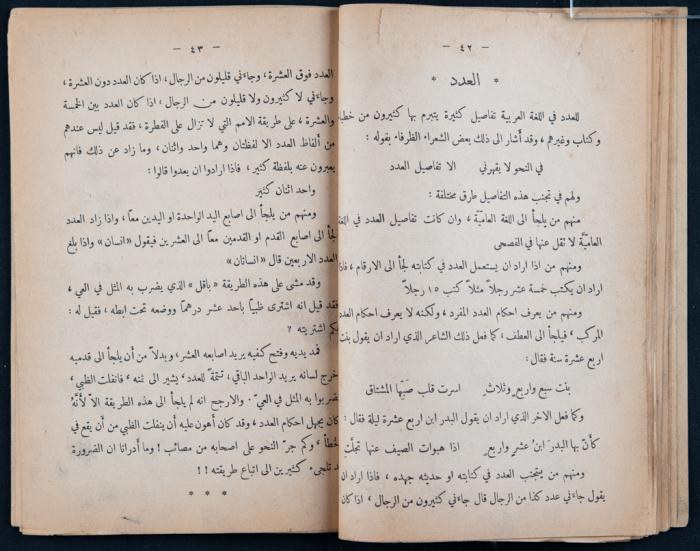 — ٤٢ —
* العدد *
للعدد في اللغة العربية تفاصيل كثيرة يتبرم بها كثيرون من خطباء
وكتاب وغيرهم، وقد أشار الى ذلك بعض الشعراء الظرفاء بقوله :
في النحو لا يقهرني الا تفاصيل العدد
ولهم في تجنب هذه التفاصيل طرق مختلفة :
منهم من يلجأ الى اللغة العاميّة، وان كانت تفاصيل العدد في اللغة
العاميّة لا تقل عنها في الفصحى
ومنهم من اذا اراد ان يستعمل العدد في كتابته لجأ الى الارقام، فاذا
اراد ان يكتب خمسة عشر رجلاً مثلاً كتب ١٥ رجلاً
ومنهم من يعرف احكام العدد المفرد، ولكنه لا يعرف احكام العدد
المركب، فيلجأ الى العطف، كما فعل ذلك الشاعر الذي اراد ان يقول بنت
اربع عشرة سنة فقال :
بنت سبع واربع وثلاث اسرت قلب صبّها المشتاق
وكما فعل الاخر الذي اراد ان يقول البدر ابن اربع عشرة ليلة فقال :
كأنّ بها البدرَ ابنُ عشر واربع اذا هبوات الصيف عنها تجلّت
ومنهم من يتجنب العدد في كتابته او حديثه جهده، فاذا اراد ان
يقول جاءني عدد كذا من الرجال قال جاءني كثيرون من الرجال، اذا كان
— ٤٣ —
العدد فوق العشرة، وجاءني قليلون من الرجال، اذا كان العدد دون العشرة،
وجاءني لا كثيرون ولا قليلون من الرجال، اذا كان العدد بين الخمسة
والعشرة، على طريقة الامم التي لا تزال على الفطرة، فقد قيل ليس عندهم
من ألفاظ العدد الا لفظتان وهما واحد واثنان، وما زاد عن ذلك فانهم
يعبرون عنه بلفظة كثير، فاذا ارادوا ان يعدوا قالوا :
واحد اثنان كثير
ومنهم من يلجأ الى اصابع اليد الواحدة او اليدين معاً، واذا زاد العدد
لجأ الى اصابع القدم او القدمين معاً الى العشرين فيقول «انسان» واذا بلغ
العدد الاربعين قال «انسانان»
وقد مشى على هذه الطريقة «باقل» الذي يضرب به المثل في العي،
فقد قيل انه اشترى ظبياً باحد عشر درهماً ووضعه تحت ابطه، فقيل له :
بكم اشتريته ؟
فمد يديه وفتح كفيه يريد اصابعه العشر، وبدلاً من أن يلجأ الى قدميه
اخرج لسانه يريد الواحد الباقي، تتمّة للعدد، يشير الى ثمنه، فانفلت الظبي،
فضربوا به المثل في العي. والارجح انه لم يلجأ الى هذه الطريقة الا لأنّه
كان يجهل احكام العدد، وقد كان أهون عليه أن ينفلت الظبي من أن يقع في
الخطأ، وكم جرّ النحو على اصحابه من مصائب ! وما أدرانا ان الضرورة
قد تلجىء كثيرين الى اتباع طريقته !!
* * *